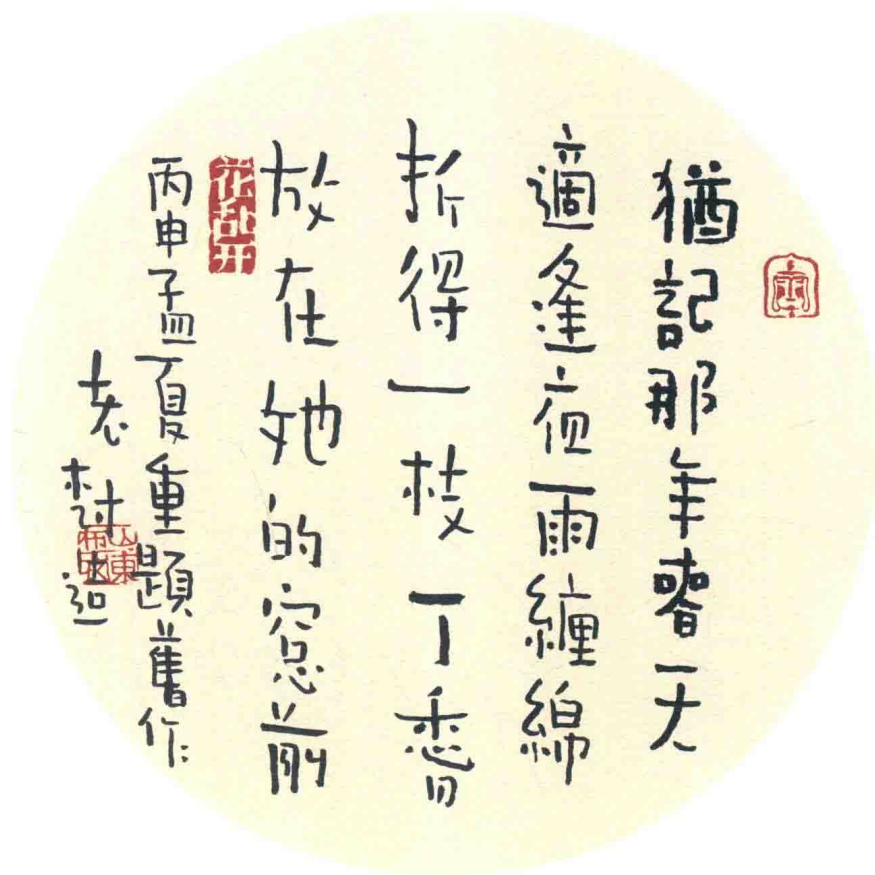 猶記那年春天
適逢夜雨纏綿
折得一枝丁香
放在她的窓前
花乱开
丙申孟夏重題舊作
老树
山東布衣